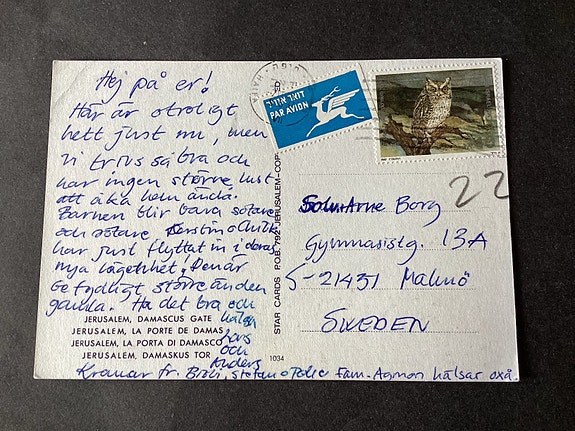 Hej på er!
Här är otroligt
hett just nu, men
vi trivs så bra och
har ingen större lust
att åka hem ändå.
Barnen blir bara sötare
och sötare. Kerstin o
har just flyttat in i deras
nya lägenhet. Den är
betydligt större än den
gamla. Ha det bra och
hälsa
Lars
och
Anders
JERUSALEM, DAMASCUS GATE
JERUSALEM, LA PORTE DE DAMAS
JERUSALEM, LA PORTA DI DAMASCO
JERUSALEM, DAMASKUS TOR
1034
Kramar fr. Stefan o Fam. Agmon hälsar oxå.
STAR CARDS P.O.B. 792 JERUSALEM-COP
ED
חיפה - HAIFA
דואר אויר
PAR AVION
22
Arne Borg
Gymnasistg. 13A
S-21431 Malmö
SWEDEN